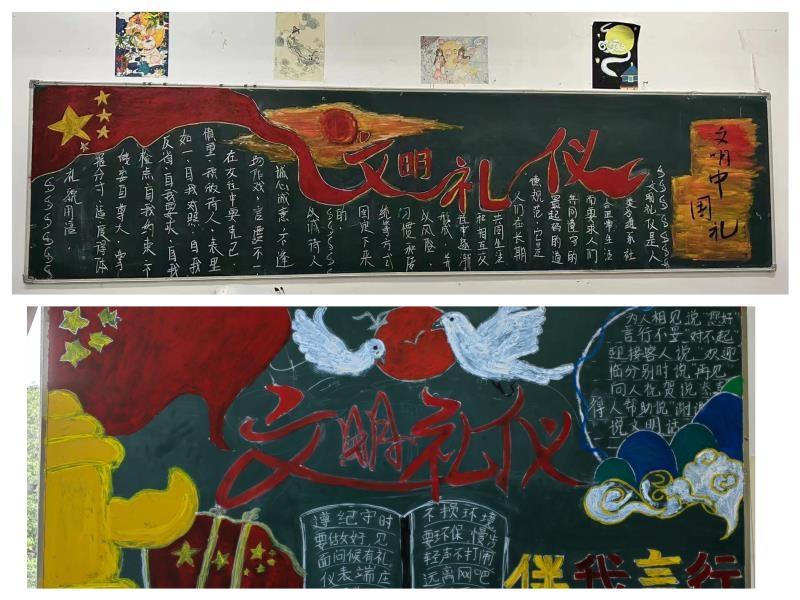 文明礼仪
文明中国礼
文明礼仪是人
类为维系社
会正常生活
而要求人们
共同遵守的
最起码的道
德规范,它是
人们在长期
共同生活
和相互交
往中逐渐
形成,并
以风俗、
习惯和传
统等方式
固定下来
的。
以诚待人
诚心诚意,不逢
在交往中要克己、
如一,自我对照,自我
反省,自我要求,自我
检点,自我约束,不
能妄自尊大,掌
握分寸 适度得体
礼貌用语。
文明礼仪
为人相见说"您好"
言行不妥"对不起"
迎接客人说"欢迎
临分别时说"再见
问人祝贺说恭喜
得人帮助说谢谢
说文明话
遵纪守时
要做好 见
面问候有礼,
仪表端庄
不损环境
要环保 慢步
轻声不打闹
远离网吧
伴我言行